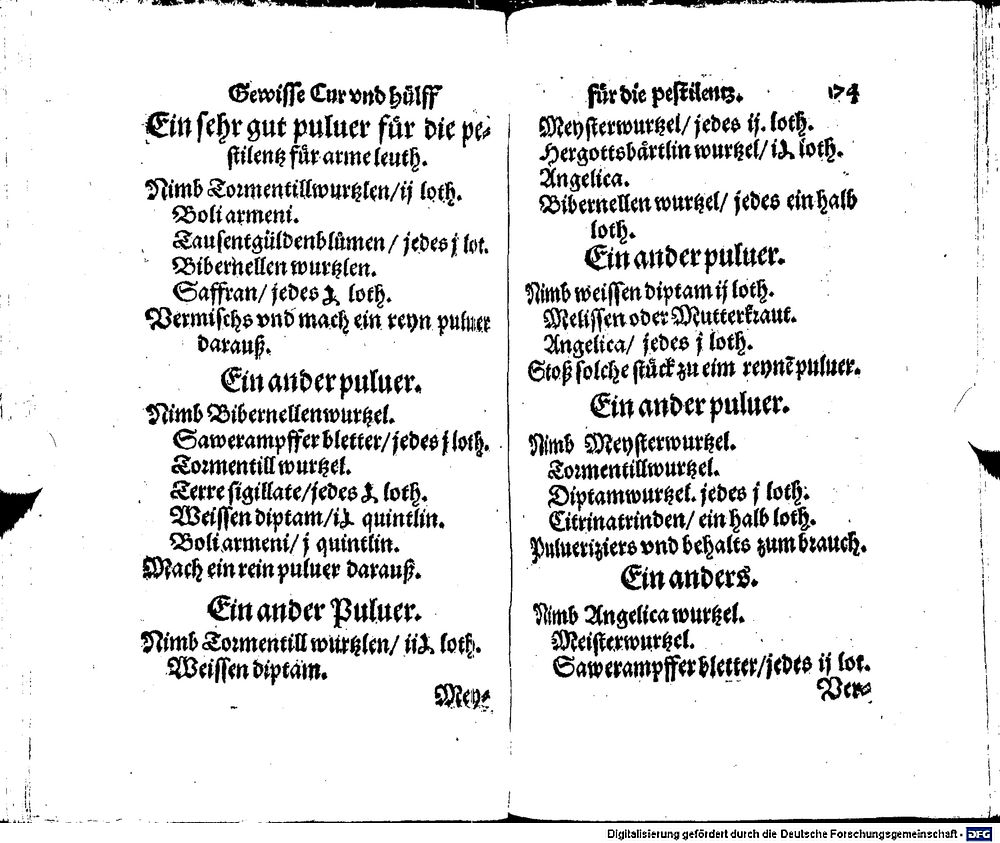 Gewisse Cur vnd hülff
Ein sehr gut puluer für die pe⸗
stilentz für arme leuth.
Nimb Tormentillwurtzlen/ij loth.
Boli armeni.
Tausentgüldenblůmen/ jedes j lot.
Bibernellen wurtzlen.
Saffran/ jedes ʒ loth.
Vermischs vnd mach ein reyn puluer
darauß.
Ein ander puluer.
Nimb Bibernellenwurtzel.
Sawerampffer bletter/jedes j loth.
Tormentill wurtzel.
Terre sigillate/jedes ʒ loth.
Weissen diptam/iʒ quintlin.
Boli armeni/ j quintlin.
Mach ein rein puluer darauß.
Ein ander Puluer.
Nimb Tormentill wurtzlen/ iiʒ loth.
Weissen diptam.
Mey⸗
für die pestilentz. 174
Meysterwurtzel/ jedes ij. loth.
Hergottsbärtlin wurtzel/ iʒ loth.
Angelica.
Bibernellen wurtzel/ jedes ein halb
loth.
Ein ander puluer.
Nimb weissen diptam ij loth.
Melissen oder Mutterkraut.
Angelica/ jedes j loth.
Stoß solche stück zu eim reynē puluer.
Ein ander puluer.
Nimb Meysterwurtzel.
Tormentillwurtzel.
Diptamwurtzel. jedes j loth.
Citrinatrinden/ ein halb loth.
Pulueriziers vnd behalts zum brauch.
Ein anders.
Nimb Angelica wurtzel.
Meisterwurtzel.
Sawerampffer bletter/jedes ij lot.
Ver⸗
Digitalisierung gefördert durch die Deutsche Forschungsgemeinschaft - DFG